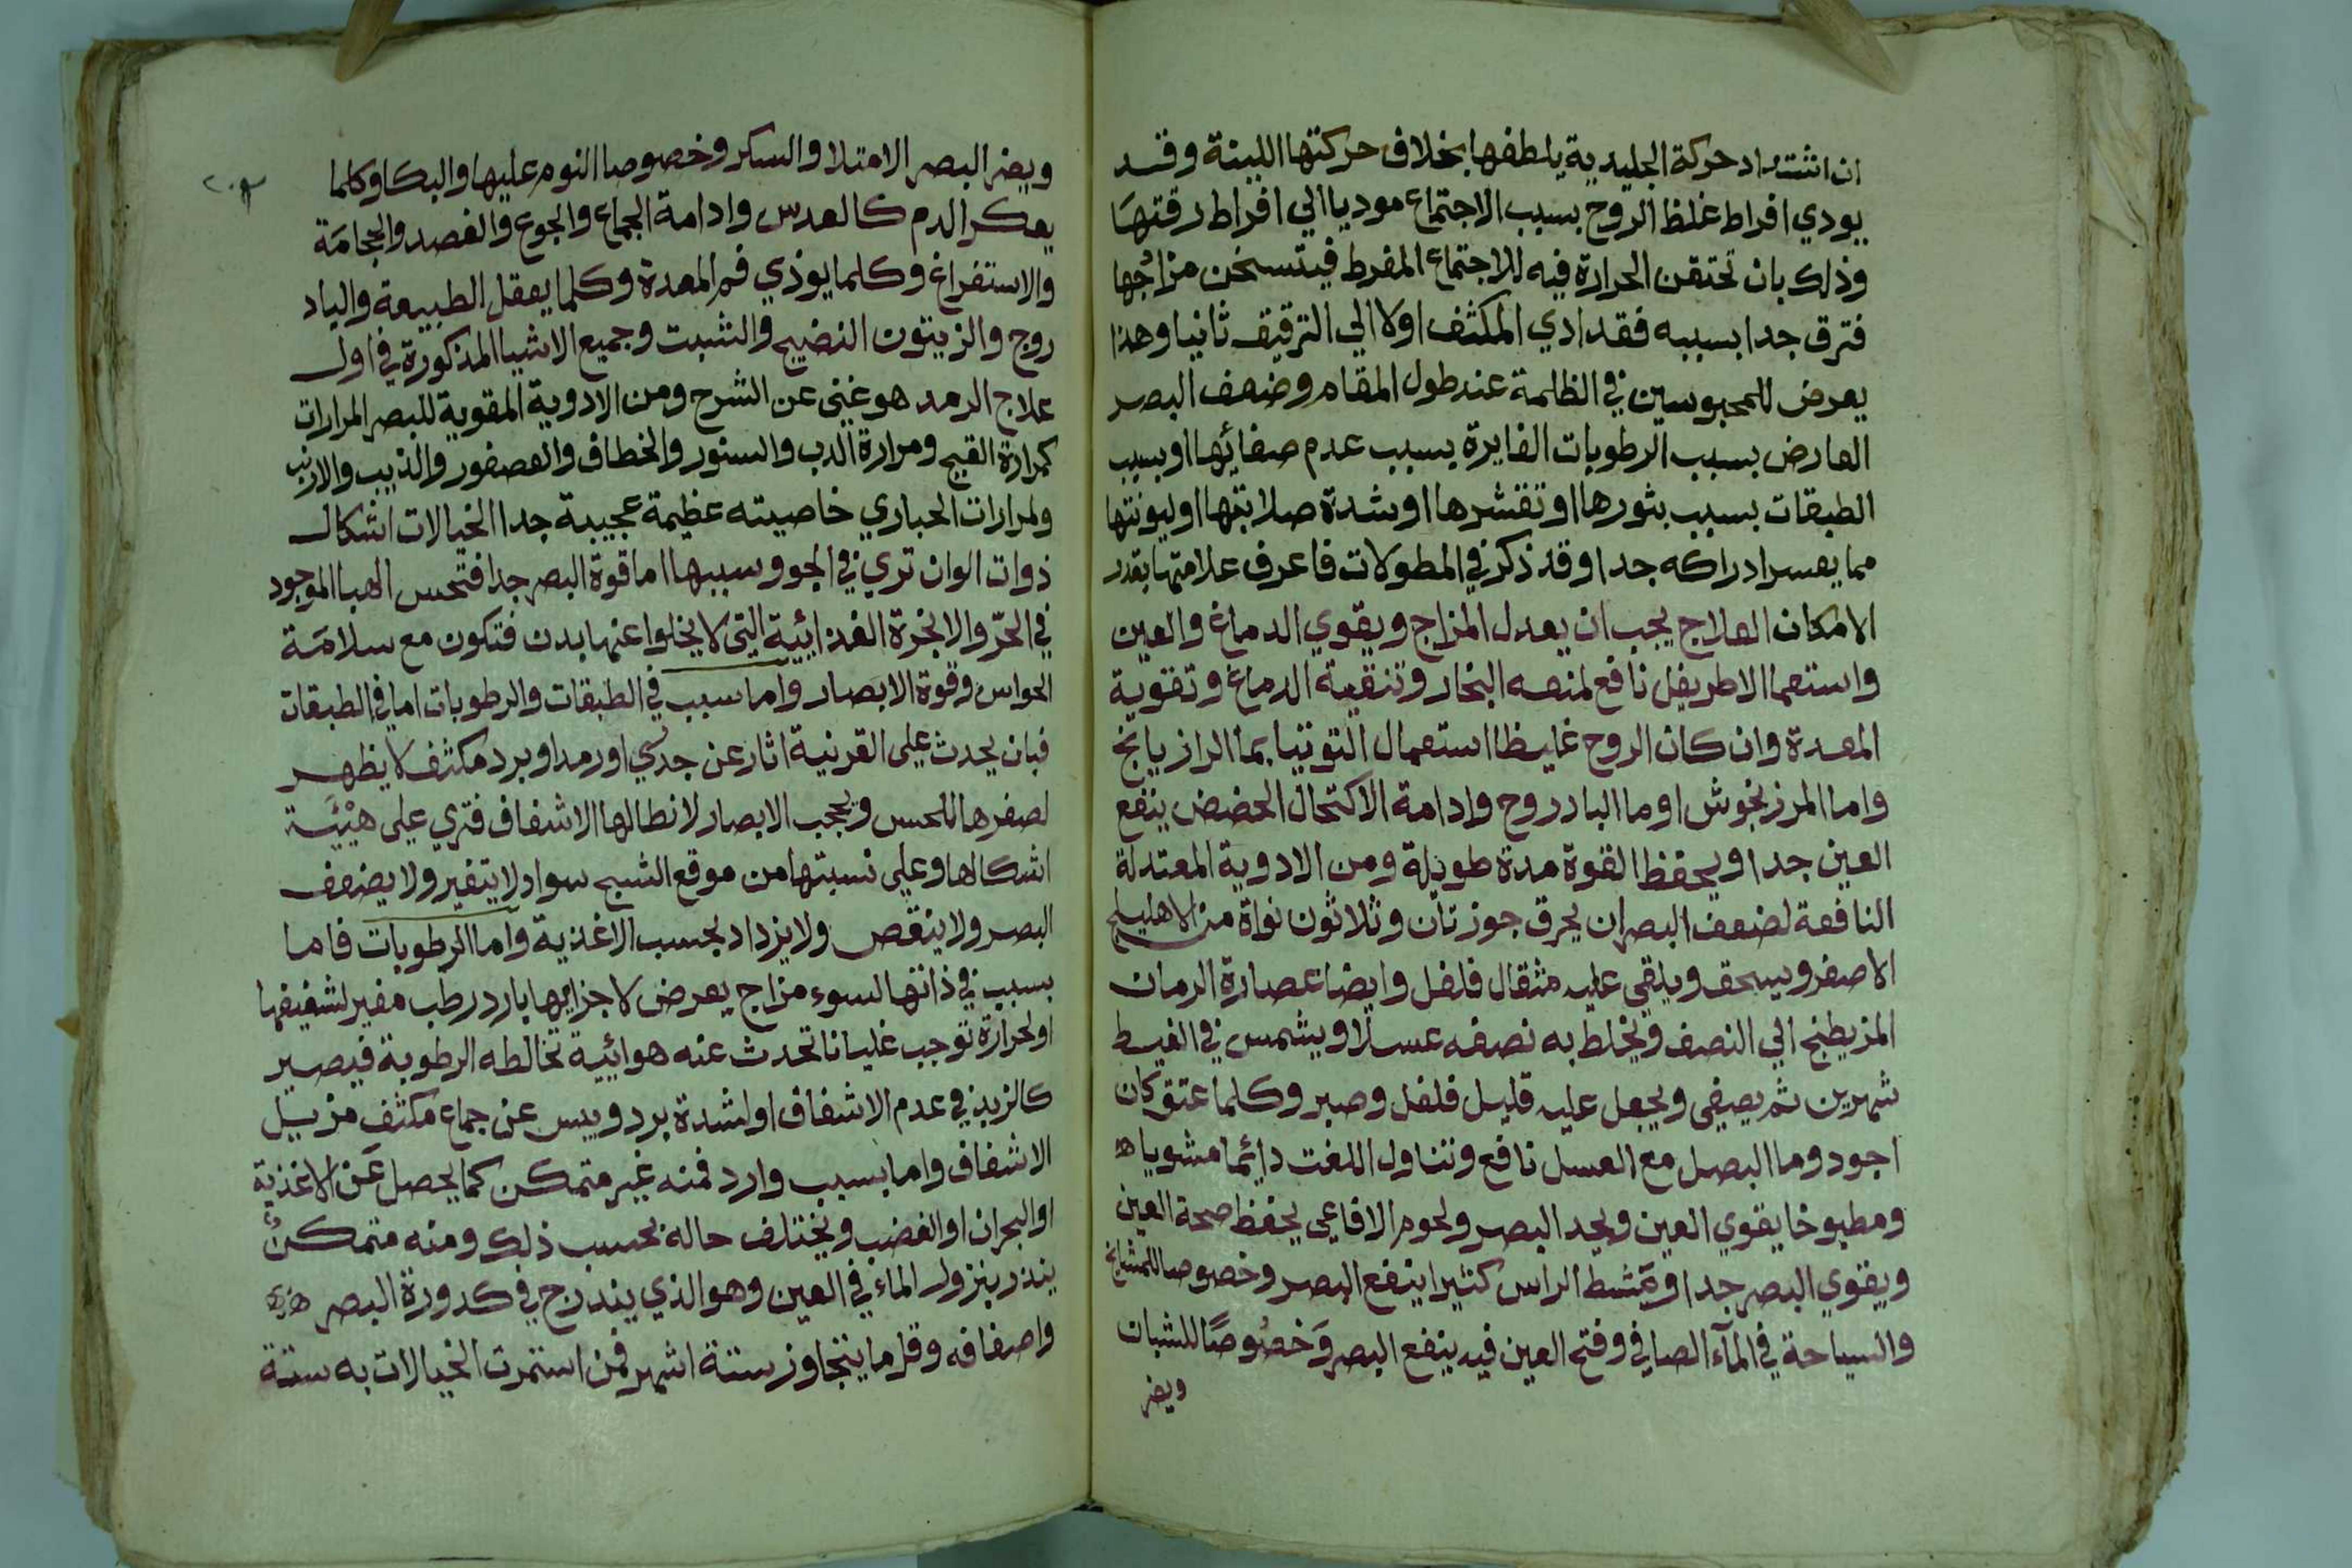 ان اشتداد حركة الجليدية يلطفها بخلاف حركتها اللينة وقد
يودي افراط غلظ الروح بسبب الاجتماع موديا الي افراط رقتها
وذلك بان تحتقن الحرارة فيه للاجتماع المفرط فيتسخن مزاجها
فترق جدا بسببه فقد ادي المكثف اولا الي الترقيق ثانيا وهذا
يعرض للمحبوسين في الظلمة عند طول المقام وضعف البصر
العارض بسبب الرطوبات الغايرة بسبب عدم صفائها او بسبب
الطبقات بسبب بثورها او تقشرها او شدة صلابتها او ليونتها
مما يعسر ادراكه جدا وقد ذكر في المطولات فاعرف علامتها بقدر
الامكان العلاج يجب ان يعدل المزاج ويقوي الدماغ والعين
واستعما الاطريفل نافع لمنعه البخار وتنقية الدماغ وتقوية
المعدة وان كان الروح غليظا استعمال التوتيا بما الرازيانج
واما المرزنجوش او ما البادروج وادامة الاكتحال الحضض ينفع
العين جدا ويحفظ القوة مدة طويلة ومن الادوية المعتدلة
النافعة لضعف البصر ان يحرق جوزتان وثلاثون نواة من الاهليلج
الاصفر ويسحق ويلقي عليه مثقال فلفل وايضا عصارة الرمان
المز يطبخ الي النصف ويخلط به نصفه عسلا ويشمس في القيظ
شهرين ثم يصفي ويجعل عليه قليل فلفل وصبر وكلما عتق كان
اجود وما البصل مع العسل نافع وتناول اللفت دائما مشويا ه
ومطبوخا يقوي العين ويحد البصر ولحوم الافاعي يحفظ صحة العين
ويقوي البصر جدا ويمشط الراس كثيرا ينفع البصر وخصوصا للمشايخ
والسباحة في المآء الصافي وفتح العين فيه ينفع البصر وَخصُوصًا للشبان
ويضر
ويضر البصر الامتلا والسكر وخصوصا النوم عليها والبكا وكلما
يعكر الدم كالعدس وادامة الجماع والجوع والفصد والحجامَة
والاستفراغ وكلما يوذي فم المعدة وكلما يعقل الطبيعة والباد
روج والزيتون النضيج والشبت وجميع الاشيا المذكورة في اول
علاج الرمد هو غني عن الشرح ومن الادوية المقوية للبصر المرارات
كمرارة القبج ومرارة الدب والسنور والخطاف والعصفور والذيب والارنب
ولمرارات الحباري خاصيته عظيمة عجيبة جدا الخيالات اشكال
ذوات الوان تري في الجو وسببها اما قوة البصر جدا فتحس الهبا الموجود
في الحرّ والابخرة الغذائية التي لا يخلوا عنها بدن فتكون مع سلامَة
الحواس وقوة الابصار واما سبب في الطبقات والرطوبات اما في الطبقات
فبان يحدث علي القرنية اثار عن جدري او رمد او برد مكثف لا يظهر
لصغرها للحس ويحجب الابصار لابطالها الاشفاف فتري علي هيْئَة
اشكالها وعلي نسبتها من موقع الشبح سواد لا يتغير ولا يضعف
البصر ولا ينقص ولا يزداد بحسب الاغذية واما الرطوبات فاما
بسبب في ذاتها لسوء مزاج يعرض لاجزايها بارد رطب مغير لشفيفها
او لحرارة توجب غليانا تحدث عنه هوائية تخالطه الرطوبة فيصير
كالزبد في عدم الاشفاف او لشدة برد ويبس عن جماع مكثف مزيل
الاشفاف واما بسبب وارد فمنه غير متمكن كما يحصل عَن الاغذية
او البحران او الغضب ويختلف حاله بحسب ذلك ومنه متمكنٌ
ينذر بنزول الماء في العين وهو الذي يندرج في كدورة البصر
واصفافه وقل ما يتجاوز ستة اشهر فمن استمرت الخيالات به ستة